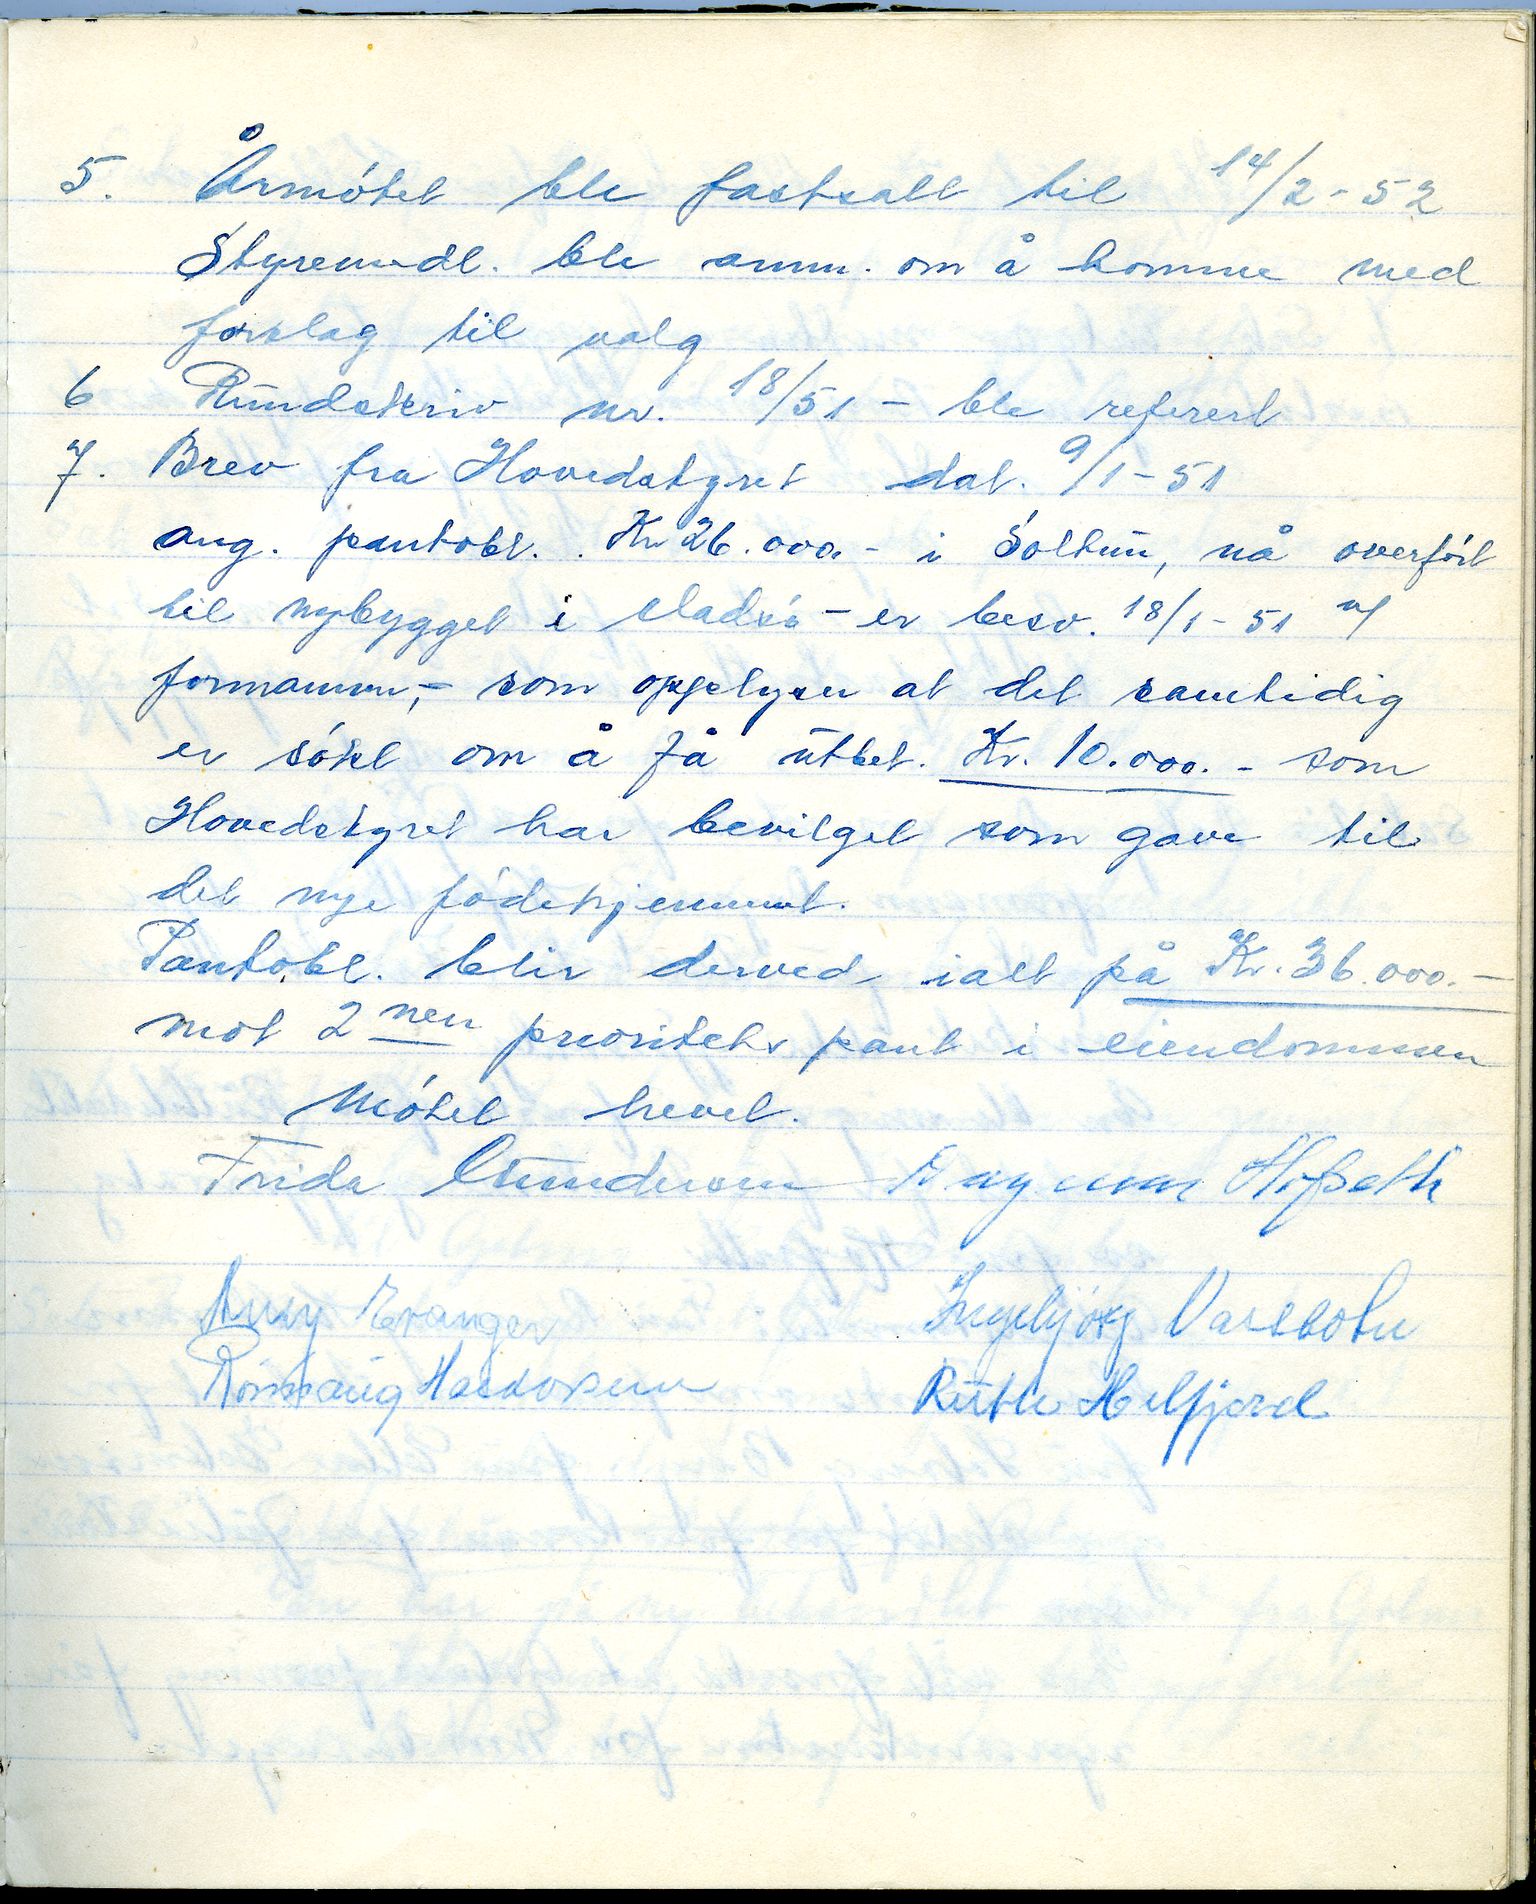 5. Årmøtet ble fastsatt til 14/2-52
Styremedl. ble anm. om å komme med
forslag til valg
6 Rundskriv nr. 18/51 - ble referert
7. Brev fra Hovedstyret dat. 9/1-51
ang. pantobl. Kr 26.000.- i Soltun, nå overført
til nybygget i Vadsø - er besv. 18/1-51 af
formannen,- som opplyser at det samtidig
er søkt om å få utbet. Kr. 10.000.- som
Hovedstyret har bevilget som gave til
det nye fødehjemmet.
Pantobl. blir derved ialt på Kr. 36.000.-
mot 2nen prioritets pant i eiendommen
Møtet hevet.
Frida Gundersen Hofseth
Evanger Ingebjørg
Ruth Helfjord